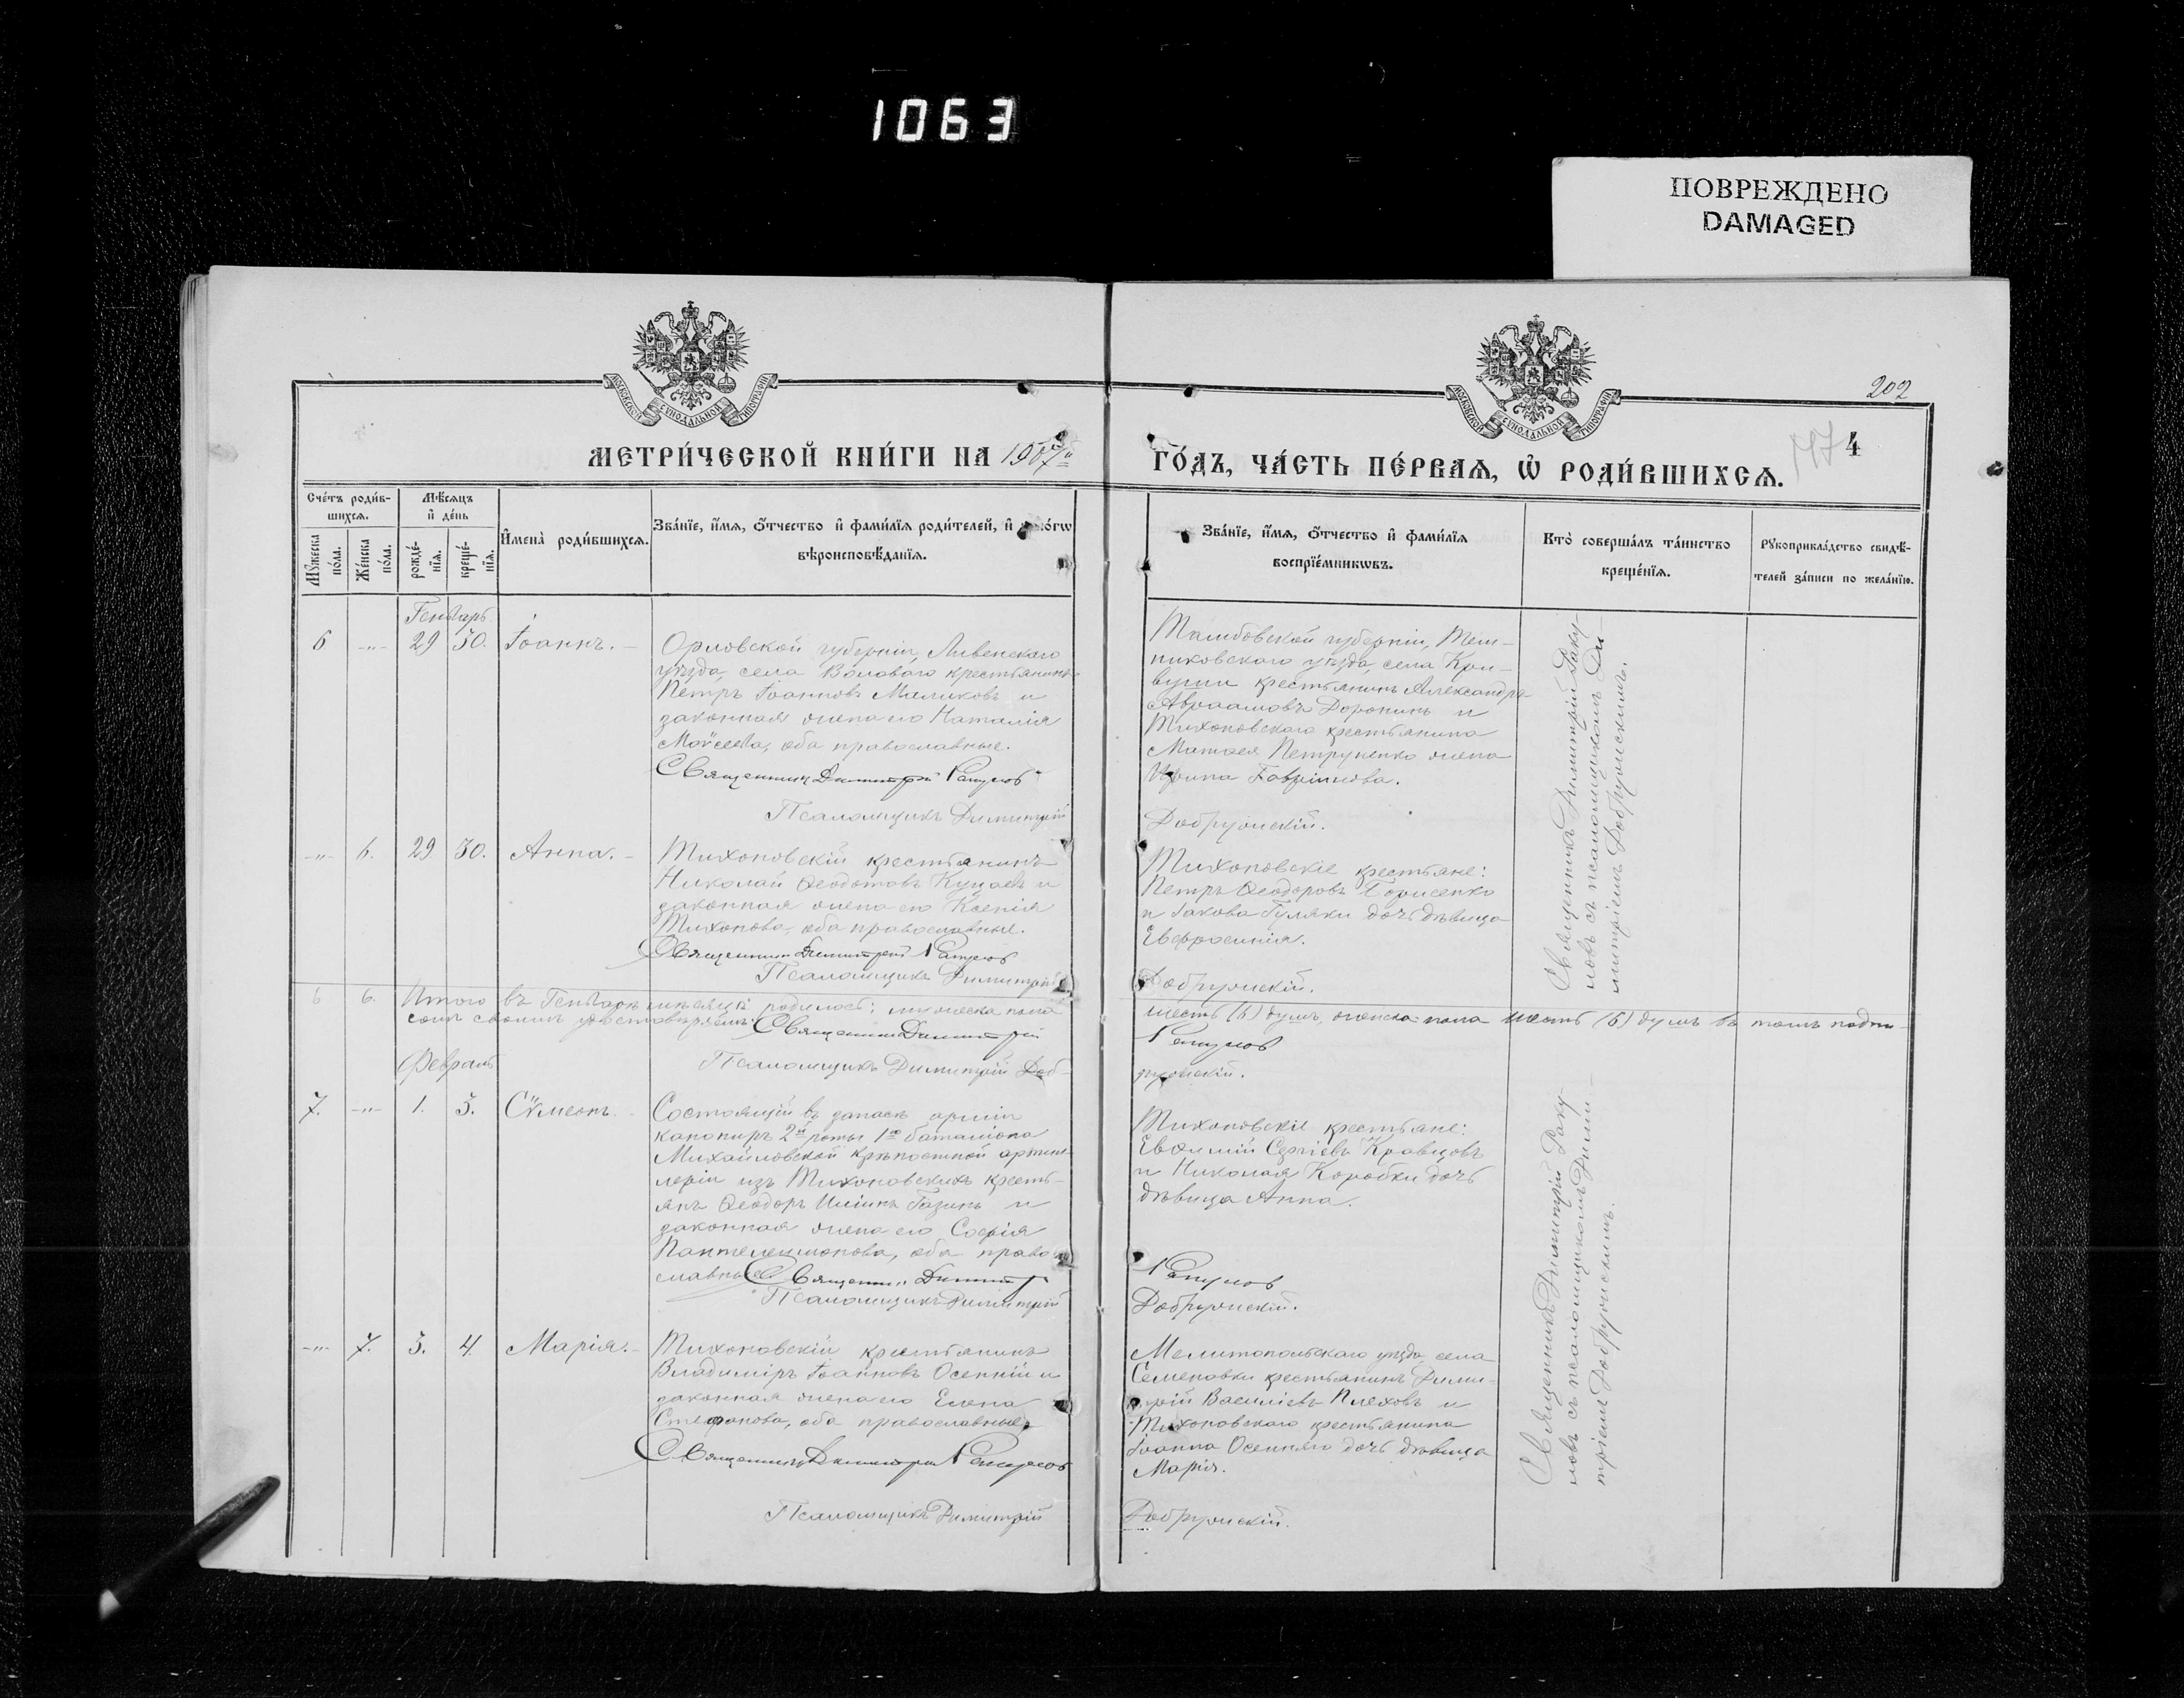 1063
ПОВРЕЖДЕНО
DAMAGED
МОСКОВСКОЙ СѴНОДАЛЬНОЙ ТИПОГРАФІИ
МОСКОВСКОЙ СѴНОДАЛЬНОЙ ТИПОГРАФІИ
202
МЕТРИ́ЧЕСКОЙ КНИ́ГИ НА 1907й
ГО́ДЪ, ЧА́СТЬ ПЕ́РВАЯ, Ѡ РОДИ́ВШИХСЯ.
4
Сче́тъ роди́в-
шихся.
Мꙋжеска по́ла.
Же́нска по́ла.
Мѣ́сяцъ
и҆ де́нь
рожде́-
нїя.
креще́-
нїя.
И҆мена̀ роди́вшихся.
Зва́нїе, и҆́мя, ѻ҆́тчество и҆ фами́лїя роди́телей, и҆
вѣроисповѣ́данїя.
Зва́нїе, и҆́мя, ѻ҆́тчество и҆ фами́лїя
воспрїе́мникѡвъ.
Кто̀ соверша́лъ та́инство
креще́нїя.
Рꙋкоприкла́дство свидѣ́-
телей за́писи по жела́нїю.
Генварь
6 -"- 29 30. Іоаннъ. -
Орловской губерніи, Ливенскаго
уѣзда, села Воловаго крестьянинъ
Петръ Іоанновъ Маликовъ и
законная жена его Наталія
Моѵсеева, оба православные.
Священникъ Димитрій Ракуловъ
Псаломщикъ Димитрій
Тамбовской губерніи, Тем-
никовскаго уѣзда, села Кри-
вуши крестьянинъ Александръ
Авраамовъ Доронинъ и
Тихоновскаго крестьянина
Матѳея Петруненко жена
Ирина Гавріилова.
Добружскій.
Священникъ Димитрій Раку-
ловъ съ псаломщикомъ Ди-
митріемъ Добружскимъ.
-"- 6. 29 30. Анна. -
Тихоновскій крестьянинъ
Николай Ѳеодотовъ Куцаевъ и
законная жена его Ксенія
Тихонова, оба православные.
Священникъ Димитрій Ракуловъ
Псаломщикъ Димитрій
Тихоновскіе крестьяне:
Петръ Ѳеодоровъ Борисенко
и Іакова Гуляки дочь дѣвица
Евфросинія.
Добружскій.
6 6. Итого въ Генварѣ мѣсяцѣ родилось: мужеска пола
шесть (6) душъ, женска пола шесть (6) душъ въ томъ подпи-
сомъ своимъ удостовѣряемъ: Священникъ Димитрій
Ракуловъ
Псаломщикъ Димитрій Доб-
ружскій.
Февраль
7. -"- 1. 3. Сѵмеонъ. -
Состоящій въ запасѣ арміи
канониръ 2й роты 1го баталіона
Михайловской крѣпостной артил-
леріи изъ Тихоновскихъ кресть-
янъ Ѳеодоръ Иліинъ Газинъ и
законная жена его Софія
Пантелеимонова, оба право-
славные. Священникъ Димитр
Псаломщикъ Димитрій
Тихоновскіе крестьяне:
Евѳимій Сергіевъ Кравцовъ
и Николая Коробки дочь
дѣвица Анна.
Ракуловъ
Добружскій.
Священникъ Димитрій Раку-
ловъ съ псаломщикомъ Дими-
тріемъ Добружскимъ.
-"- 7. 3. 4. Марія. -
Тихоновскій крестьянинъ
Владиміръ Іоанновъ Осенній и
законная жена его Елена
Стефанова, оба православные
Священникъ Димитрій Ракуловъ
Псаломщикъ Димитрій
Мелитопольскаго уѣзда, села
Семеновки крестьянинъ Дими-
трій Василіевъ Плеховъ и
Тихоновскаго крестьянина
Іоанна Осенняго дочь дѣвица
Марія.
Добружскій.